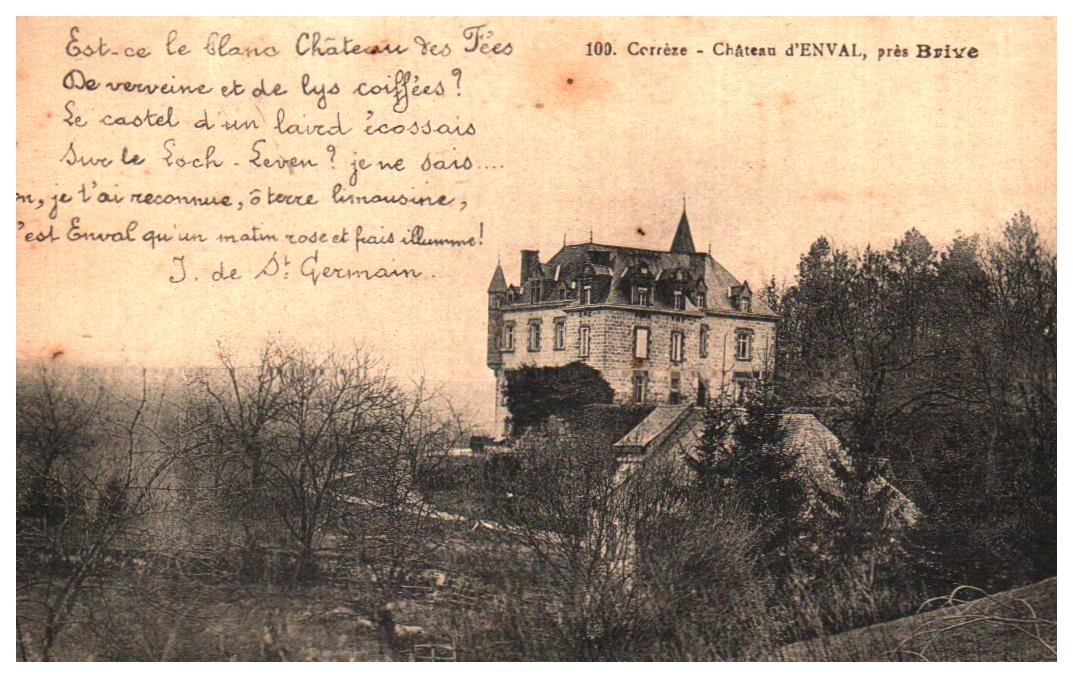 Est-ce le blanc Château des Fées
De verveine et de lys coiffées ?
Le castel d'un laird écossais
Sur le Loch-Leven ? je ne sais....
n, je t'ai reconnue, ô terre limousine,
'est Enval qu'un matin rose et frais illumine !
J. de St Germain.
100. Corrèze - Château d'ENVAL, près Brive